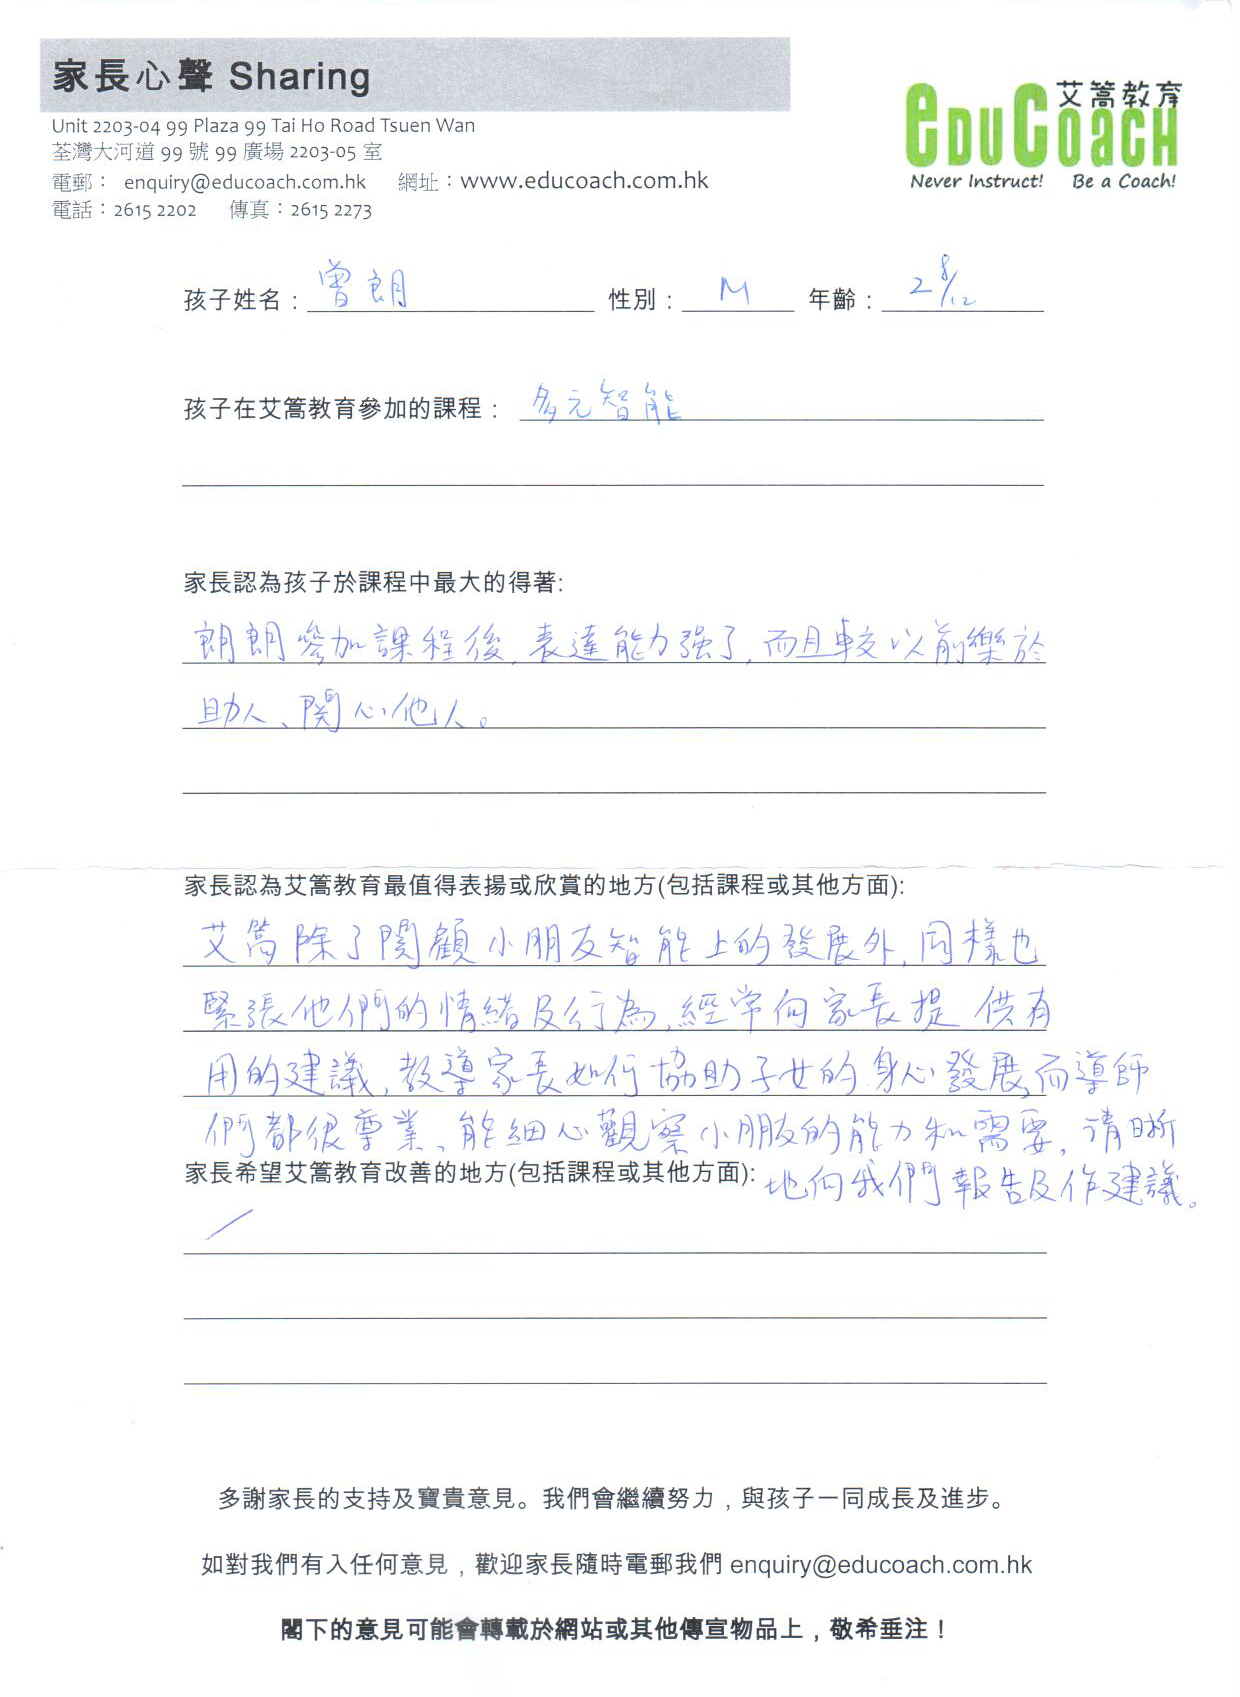 家長心聲 Sharing
Unit 2203-04 99 Plaza 99 Tai Ho Road Tsuen Wan
荃灣大河道 99 號 99 廣場 2203-05 室
電郵： enquiry@educoach.com.hk 網址：www.educoach.com.hk
電話：2615 2202 傳真：2615 2273
艾篙教育
EDUCOACH
Never Instruct! Be a Coach!
孩子姓名：曾朗 性別：M 年齡：2 8/12
孩子在艾篙教育參加的課程：多元智能
家長認為孩子於課程中最大的得著:
朗朗參加課程後，表達能力強了，而且較以前樂於
助人、関心他人。
家長認為艾篙教育最值得表揚或欣賞的地方(包括課程或其他方面):
艾篙除了関顧小朋友智能上的發展外，同樣也
緊張他們的情緒及行為，經常向家長提供有
用的建議，教導家長如何協助子女的身心發展，而導師
們都很專業、能細心觀察小朋友的能力和需要，清晰
地向我們報告及作建議。
家長希望艾篙教育改善的地方(包括課程或其他方面):
/
多謝家長的支持及寶貴意見。我們會繼續努力，與孩子一同成長及進步。
如對我們有入任何意見，歡迎家長隨時電郵我們 enquiry@educoach.com.hk
閣下的意見可能會轉載於網站或其他傳宣物品上，敬希垂注！